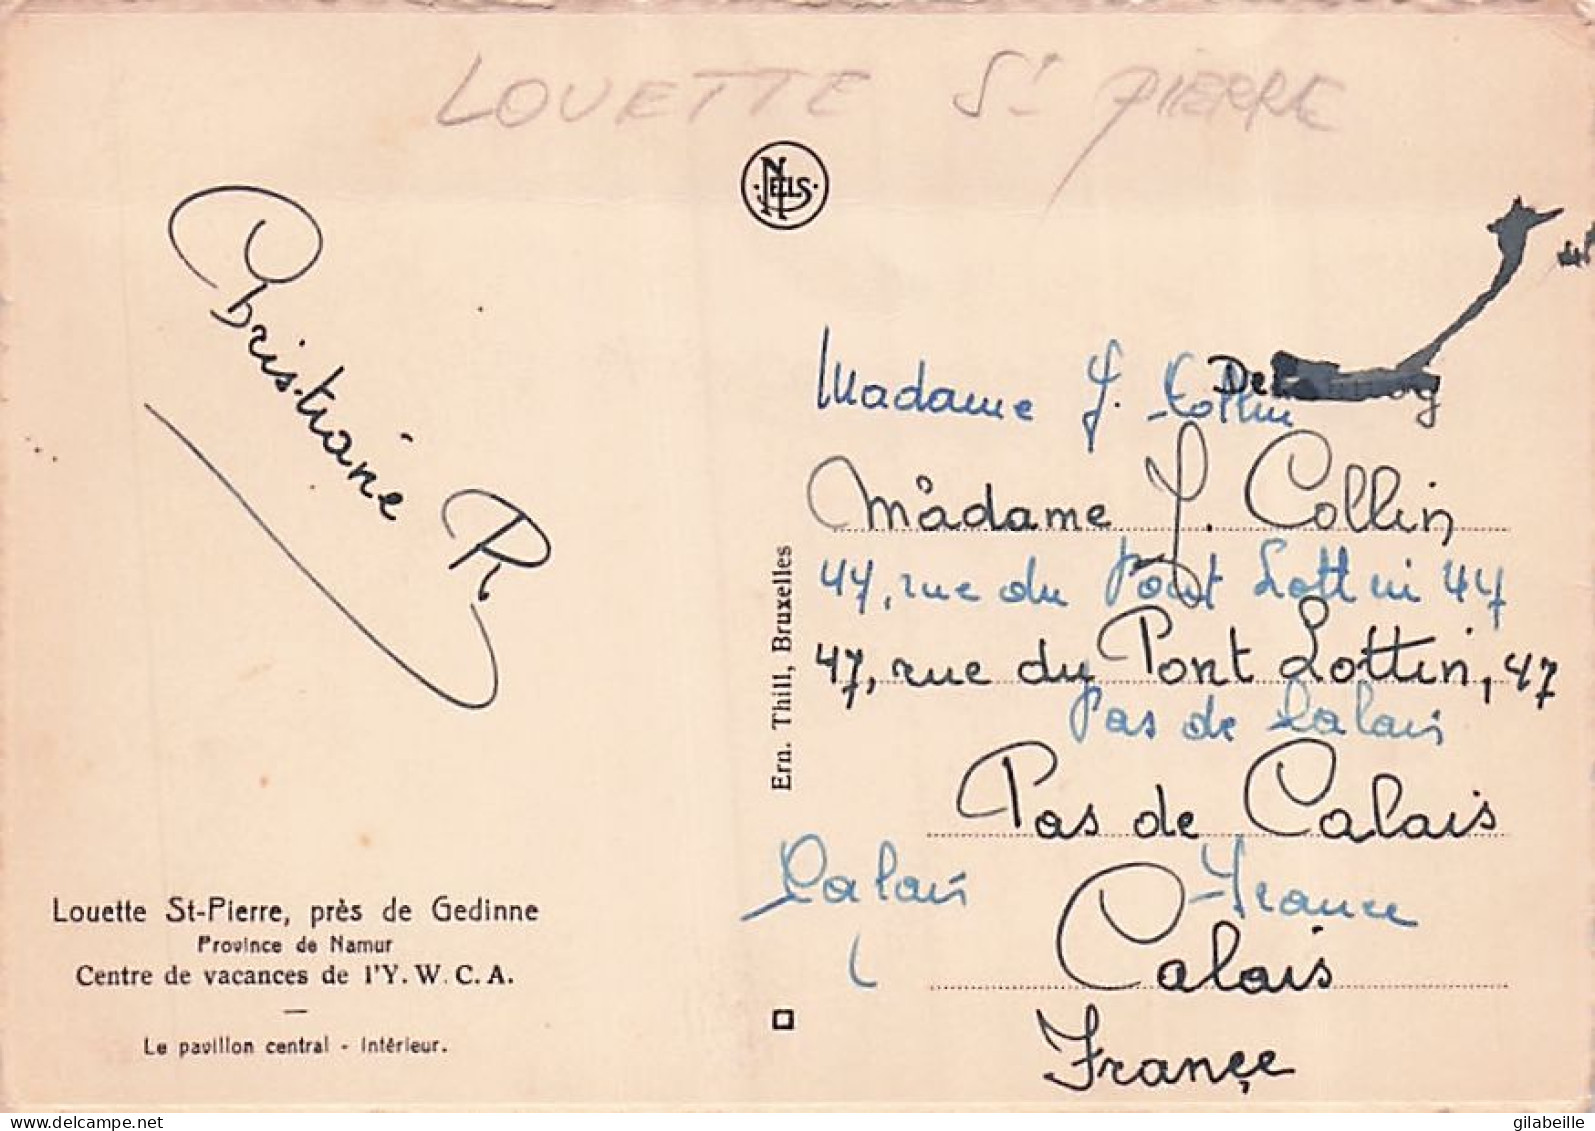 LOUETTE St PIERRE
NELS
Christiane R
Louette St-Pierre, près de Gedinne
Province de Namur
Centre de vacances de l'Y.W.C.A.
Le pavillon central - Intérieur.
Ern. Thill, Bruxelles
Madame J. Collin
Madame J. Collin
47, rue du Pont Lottin 47
47, rue du Pont Lottin, 47
Pas de Calais
Pas de Calais
Calais France
Calais
France
gilabeille